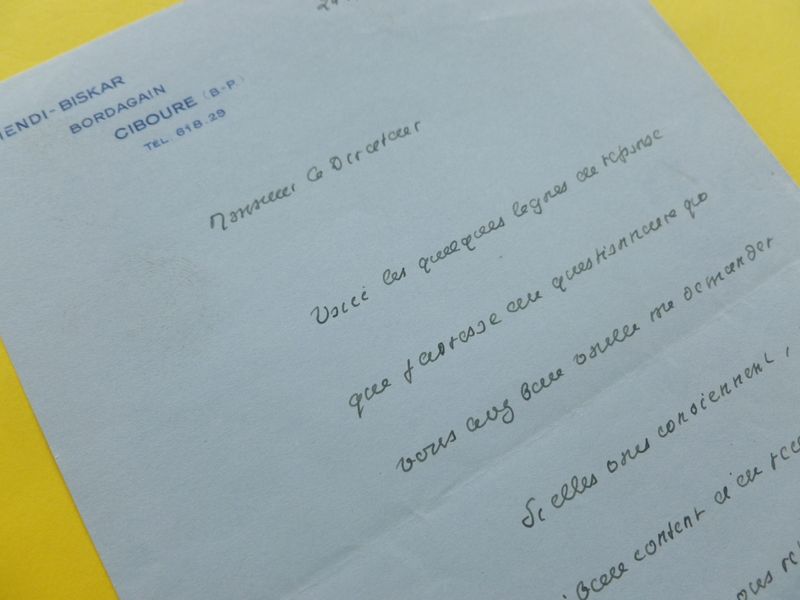 HENDI-BISKAR
BORDAGAIN
CIBOURE (B-P.)
TÉL. 618.29
Monsieur le Directeur
Voici les quelques lignes en réponse
que j'adresse au questionnaire que
vous avez bien voulu me demander
Si elles vous conviennent,
bien content d'en
vous